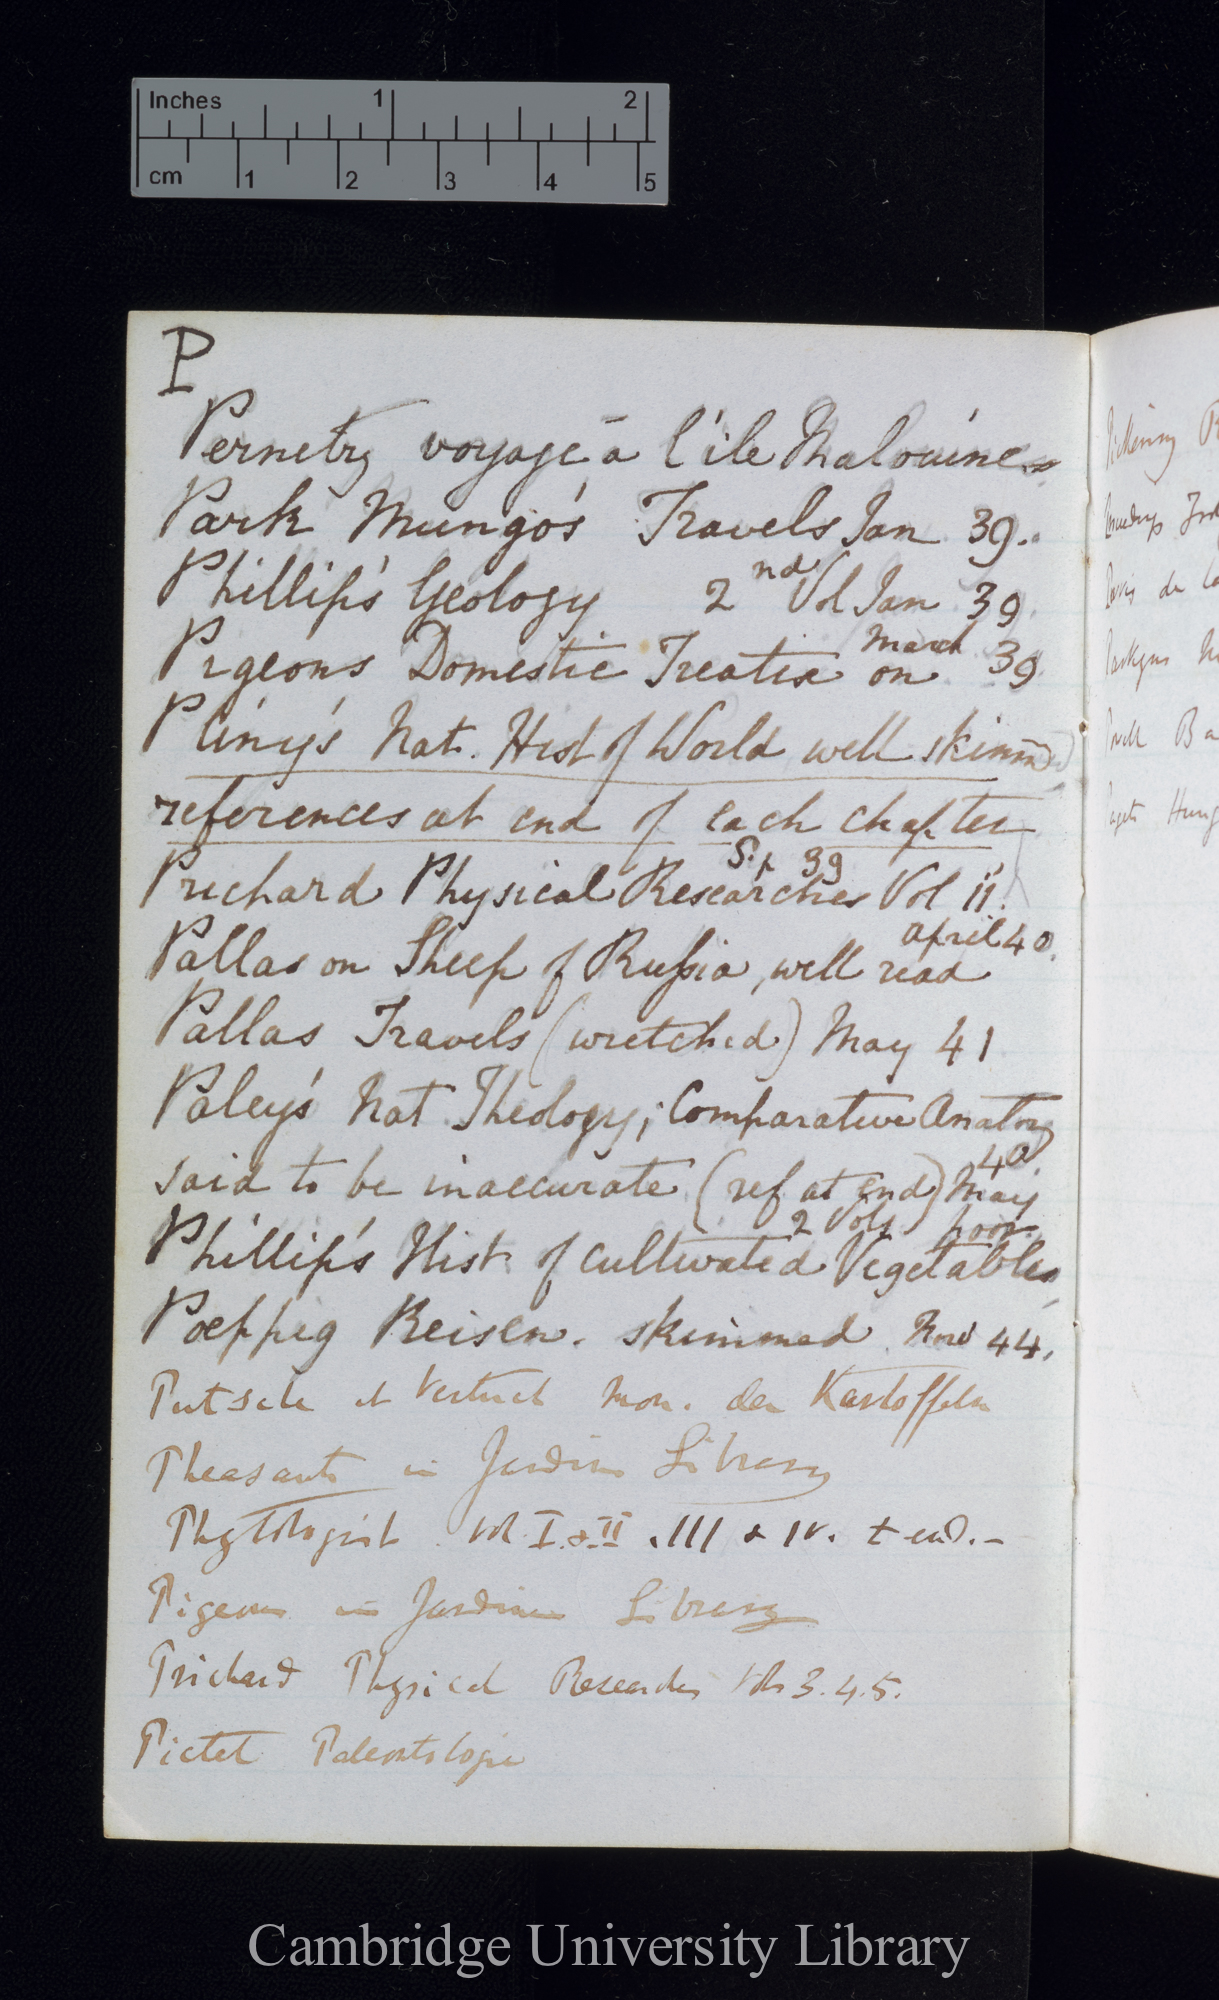 Inches 1 2
cm 1 2 3 4 5
P
Pernety voyage à l'ile Malouines
Park Mungo's Travels Jan 39.
Phillip's Geology 2nd Vol Jan 39
Pigeons Domestic Treatise on March 39
Pliny's Nat. Hist of World well skimmd
references at end of each chapter
Prichard Physical Researches Vol ii. Sep 39
Pallas on Sheep of Russia, well read april 40.
Pallas Travels (wretched) May 41
Paley's Nat Theology; Comparative Anatomy
said to be inaccurate (ref at end) May 40
Phillip's Hist of cultivated Vegetables 2 Vols poor
Poeppig Reisen. skimmed. Nov 44.
Putsche et Vertuch Mon. der Kartoffeln
Pheasants in Jardine Library
Phytologist. Vol. I. & II. III & IV. to end.-
Pigeons in Jardines Library
Prichard Physical Researches Vols 3. 4. 5.
Pictet Paleontologie
Pickering
Cambridge University Library